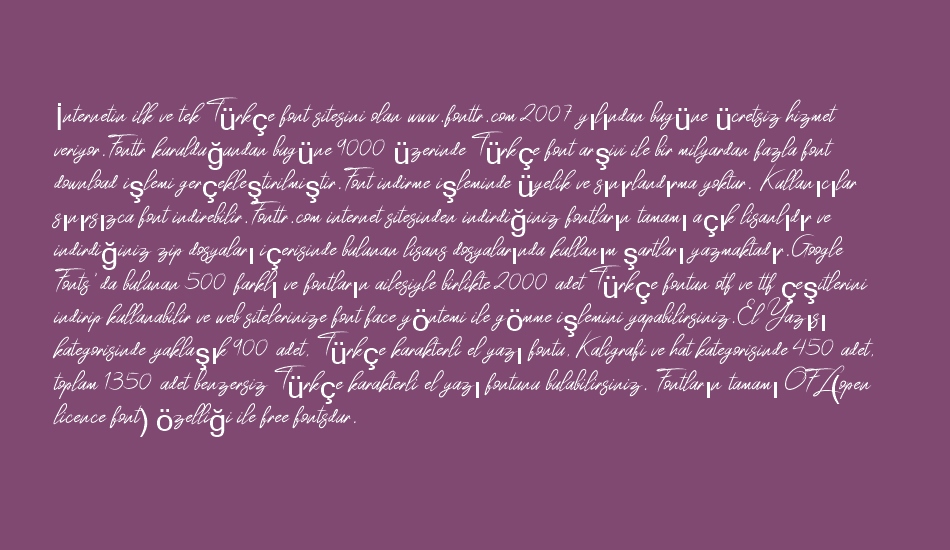 İnternetin ilk ve tek Türkçe font sitesini olan www.fonttr.com 2007 yılından bugüne ücretsiz hizmet
veriyor.Fonttr kurulduğundan bugüne 9000 üzerinde Türkçe font arşivi ile bir milyardan fazla font
download işlemi gerçekleştirilmiştir.Font indirme işleminde üyelik ve sınırlandırma yoktur. Kullanıcılar
sınırsızca font indirebilir.Fonttr.com internet sitesinden indirdiğiniz fontların tamamı açık lisanlıdır ve
indirdiğiniz zip dosyaları içerisinde bulunan lisans dosyalarında kullanım şartları yazmaktadır.Google
Fonts' da bulunan 500 farklı ve fontların ailesiyle birlikte 2000 adet Türkçe fontun otf ve ttf çeşitlerini
indirip kullanabilir ve web sitelerinize font face yöntemi ile gömme işlemini yapabilirsiniz.El Yazısı
kategorisinde yaklaşık 900 adet, Türkçe karakterli el yazı fontu, Kaligrafi ve hat kategorisinde 450 adet,
toplam 1350 adet benzersiz Türkçe karakterli el yazı fontunu bulabilirsiniz. Fontların tamamı OFL(open
licence font) özelliği ile free fontsdur.